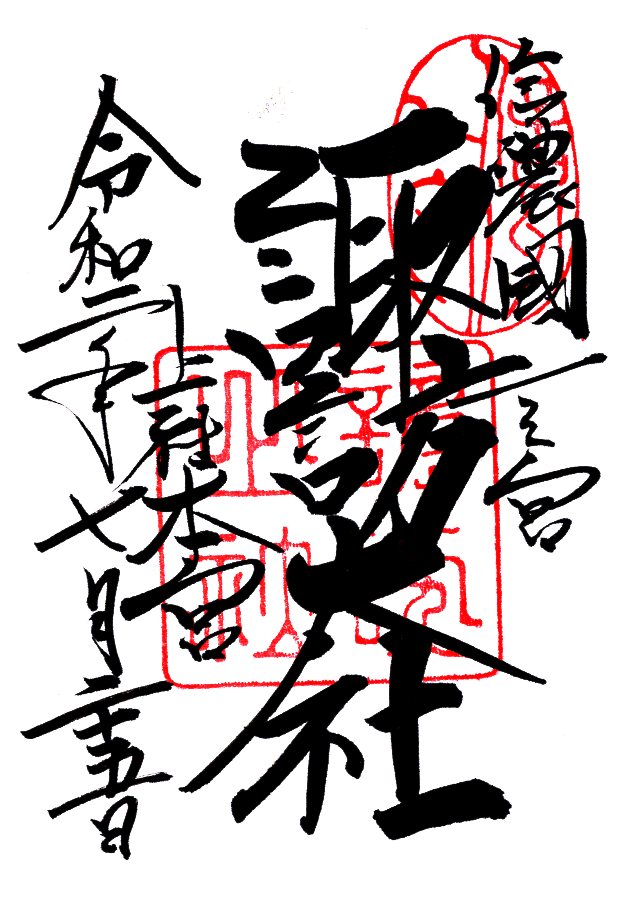 信濃國一之宮
諏訪大社
上社本宮
令和二年七月二十五日